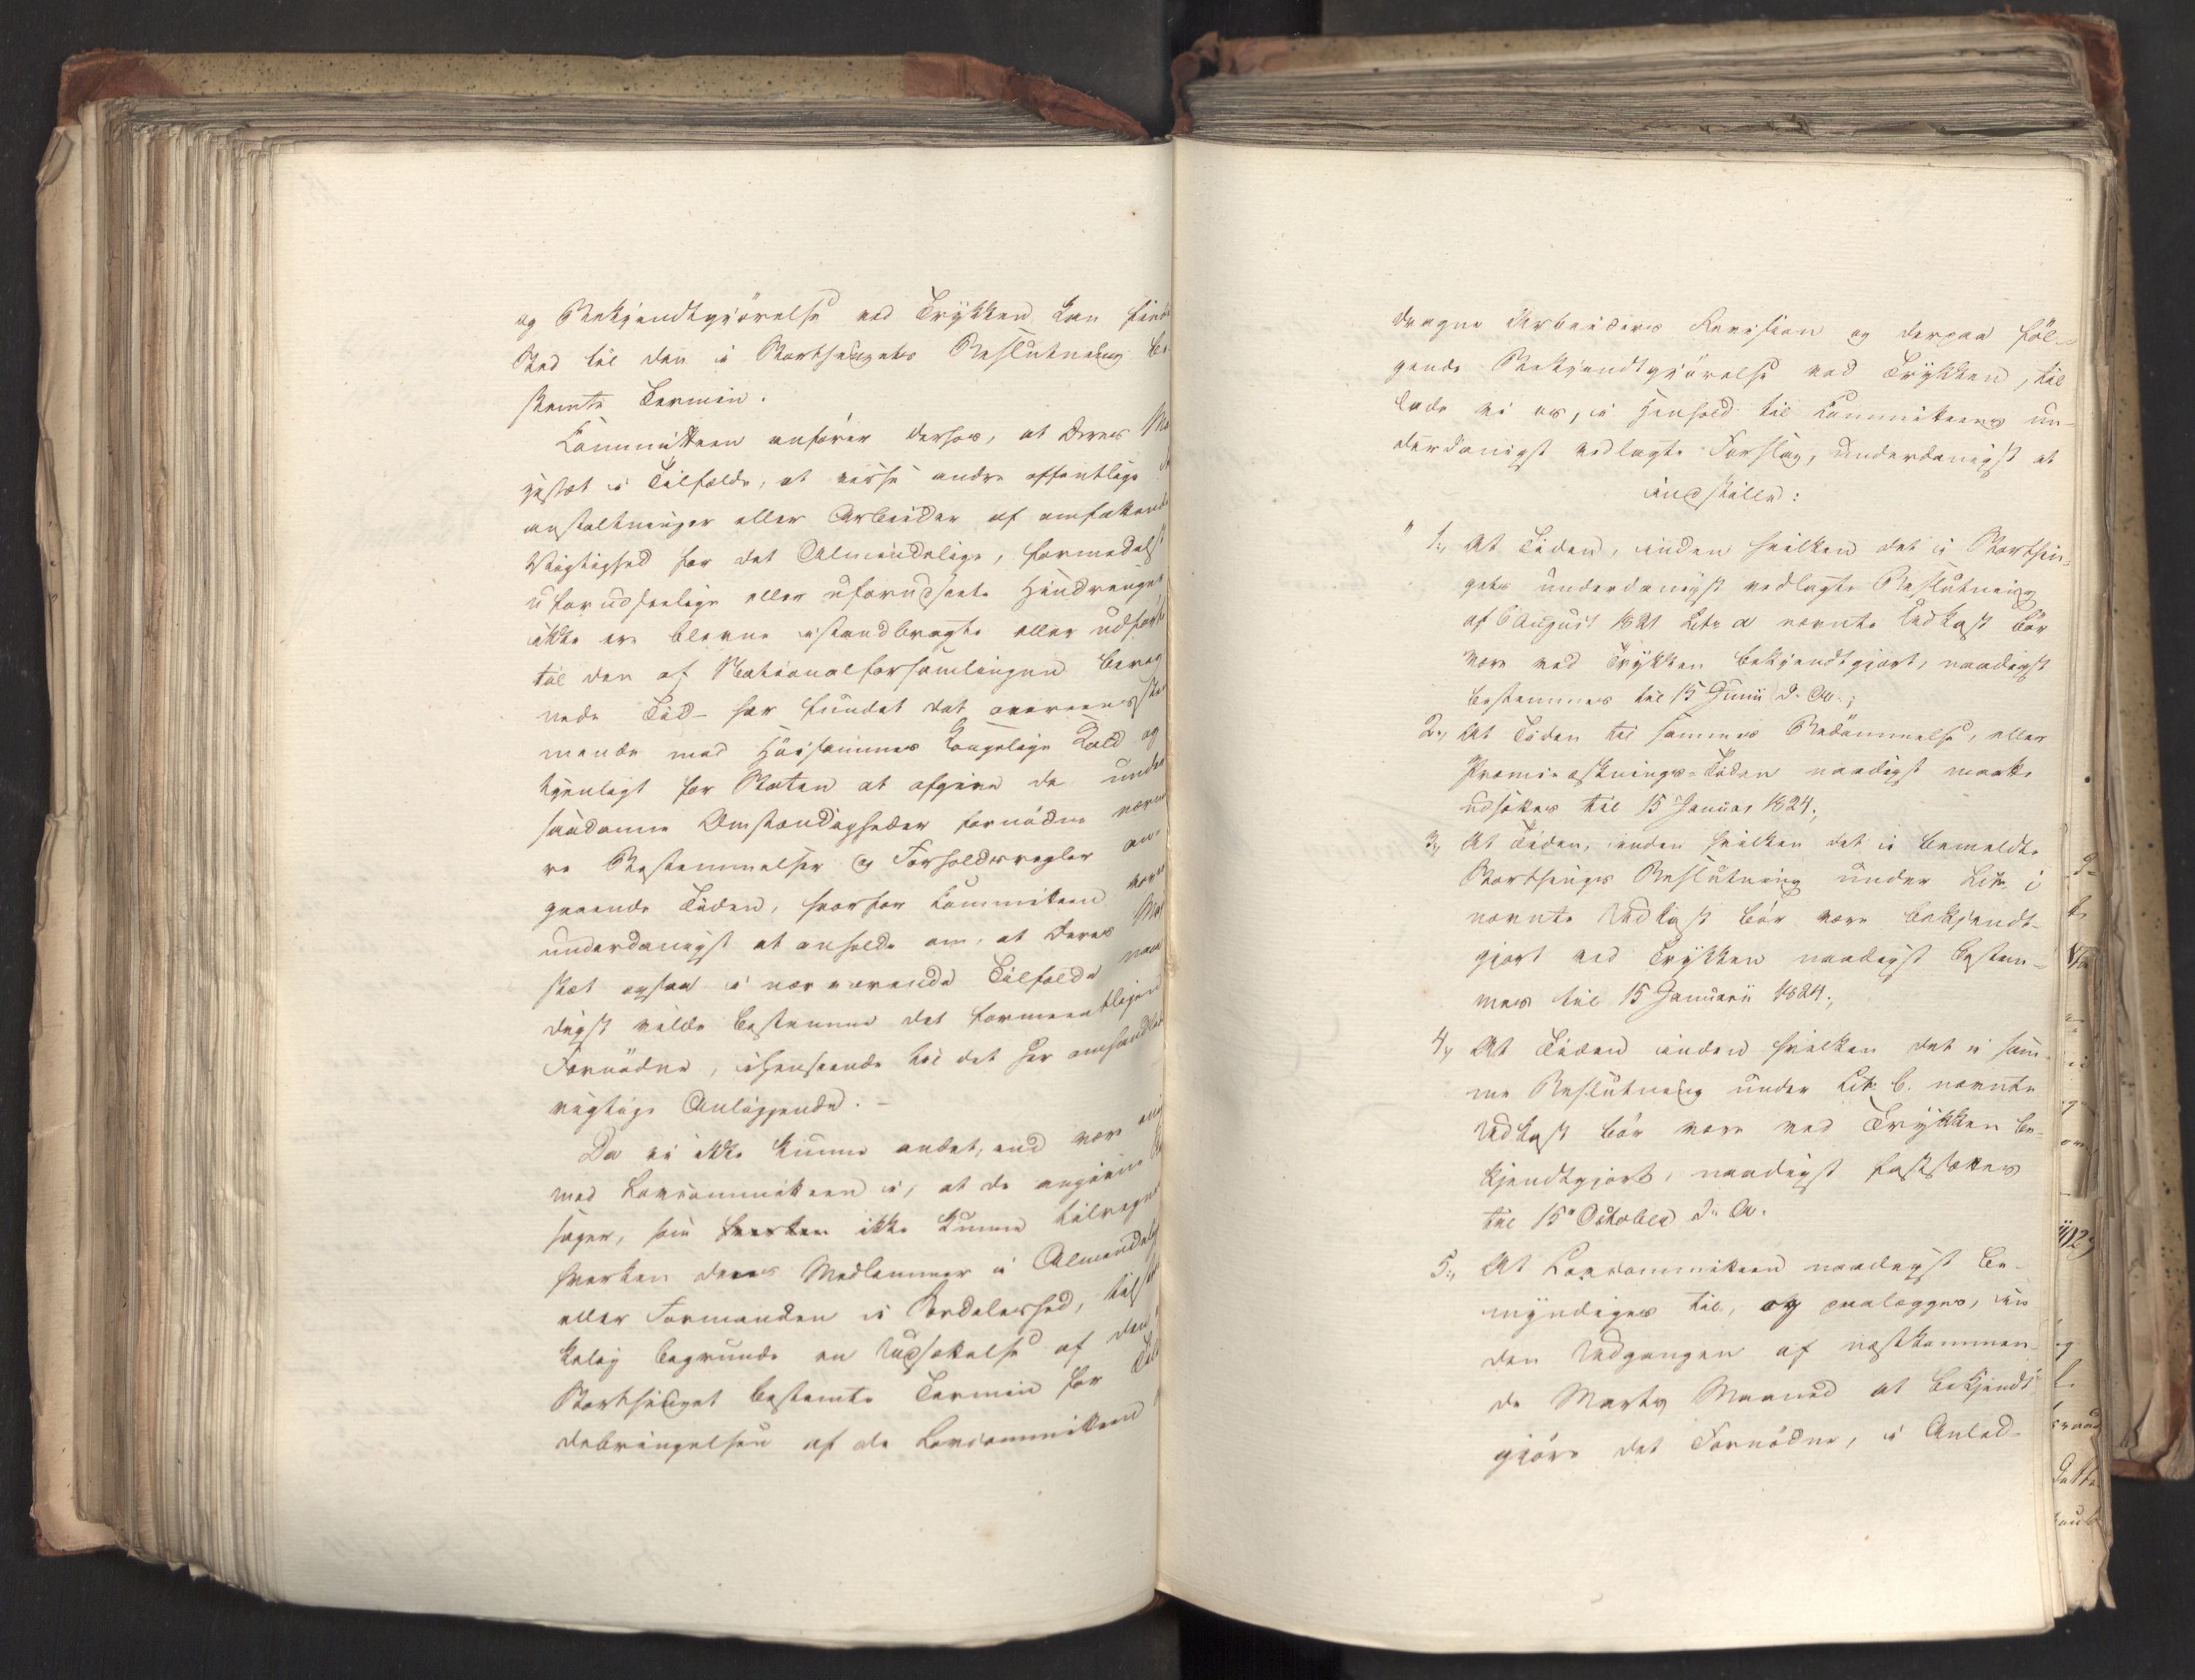 og Bekjendtgjörelse ved Trykken kan finde
Sted til den i Storthingets Beslutning be
stemte Termin.
Committeen anfører derhos, at Deres Ma
jestæt i Tilfælde, at visse andre offentlige
anstaltninger eller Arbeider af omfattende
Vigtighed for det Almindelige, formedelst
uforudseelige eller uforudseete Hindringer
ikke ere blevne istandbragte eller udførte
til den af Nationalforsamlingen bereg
nede Tid - har fundet det overeensstem
mende med Höistsammes Kongelige Kald og
tjenligt for Staten at afgive de under
saadanne Omstændigheder fornödne nærme
re Bestemmelser og Forholdsregler an-
gaaende Tiden, hvorfor Committeen vover
underdanigst at anholde om, at Deres Maj
stæt ogsaa i nærværende Tilfælde naa
digst vilde bestemme det formeentligen
Fornödne, ihenseende til det her omhandlede
vigtige Anliggende. -
Da vi ikke kunne andet, end være enig
med Lovcommitteen i, at de angivne
sager, som ikke kunne tilregnes
hverken dens Medlemmer i Almindelig
eller Formanden i Særdeleshed, tilstræ
kelig begrunde en Udsættelse af den i
Storthinget bestemte Termin for Tilv
debringelsen af de Lovcommitteen
dragne Arbeiders Revision og derpaa föl-
gende Bekjendtgjörelse ved Trykken, til
lade vi os, i Henhold til Committeens un-
derdanigst vedlagte Forslag, underdanigst at
indstille:
" 1., At Tiden, inden hvilken det i Storthin-
gets underdanigst vedlagte Beslutning
af 6 August 1821 Litr a nævnte Udkast bör
være ved Trykken bekjendtgjort, naadigst
bestemmes til 15 Junii d. A.;
2., At Tiden til sammes Bedömmelse, eller
Præmieæsknings-Tiden naadigst maatte
udsættes til 15 Januar 1824.;
3., At Tiden, inden hvilken det i bemeldte
Storthings Beslutning under Litr. i
nævnte Udkast bör være bekjendt-
gjort ved Trykken naadigst bestem-
mes til 15 Januarii 1824.;
4., At Tiden inden hvilken det i sam-
me Beslutning under Litr. b. nævnte
Udkast bör være ved Trykken be-
kjendtgjort, naadigst fastsættes
til 15de October d. A.
5., At Lovcommitteen naadigst be-
myndiges til, og paalægges, in
den Udgangen af næstkommen-
de Marts Maaned at bekjendt-
gjöre det Fornödne, i Anled-